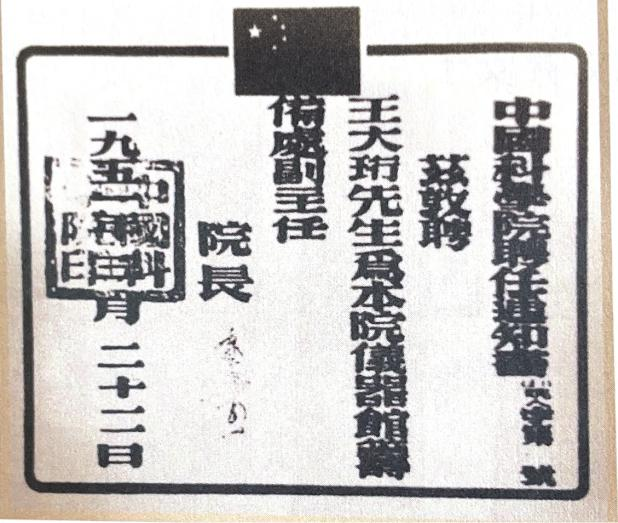 中國科學院聘任通知書 字第 號
茲敦聘
王大珩先生爲本院儀器館籌
備處副主任
院長
一九五一年 月二十二日
中國科
院